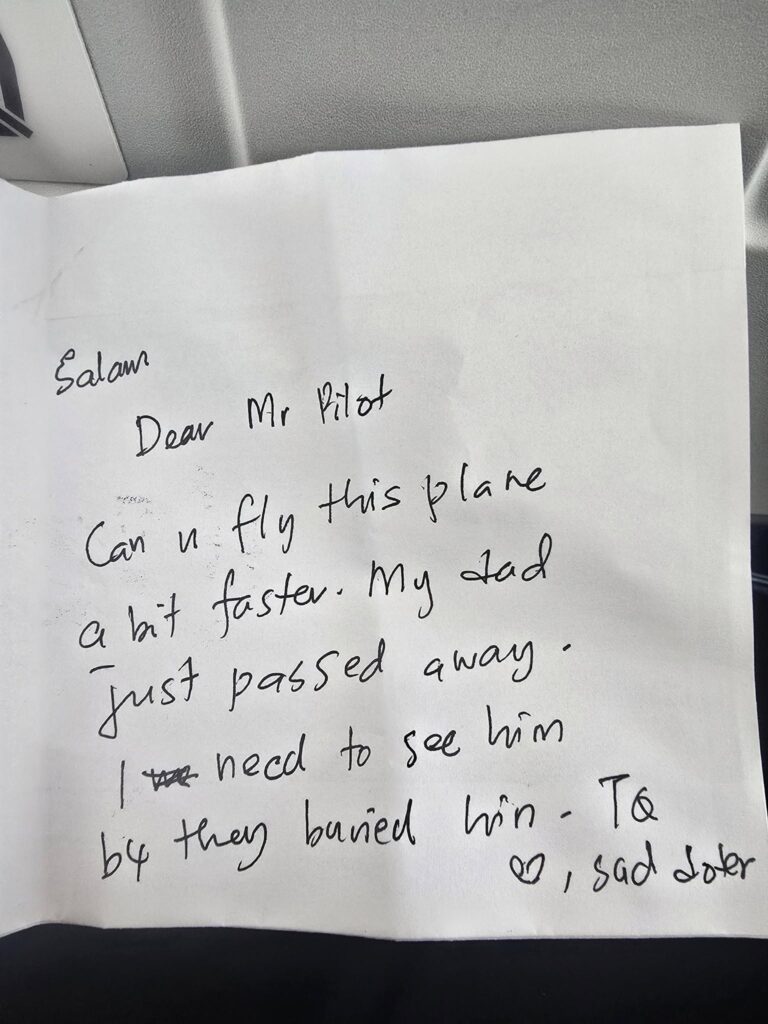 Salam
Dear Mr Pilot
Can u fly this plane
a bit faster. My dad
just passed away.
I need to see him
b4 they buried him - TQ
♡, sad doter